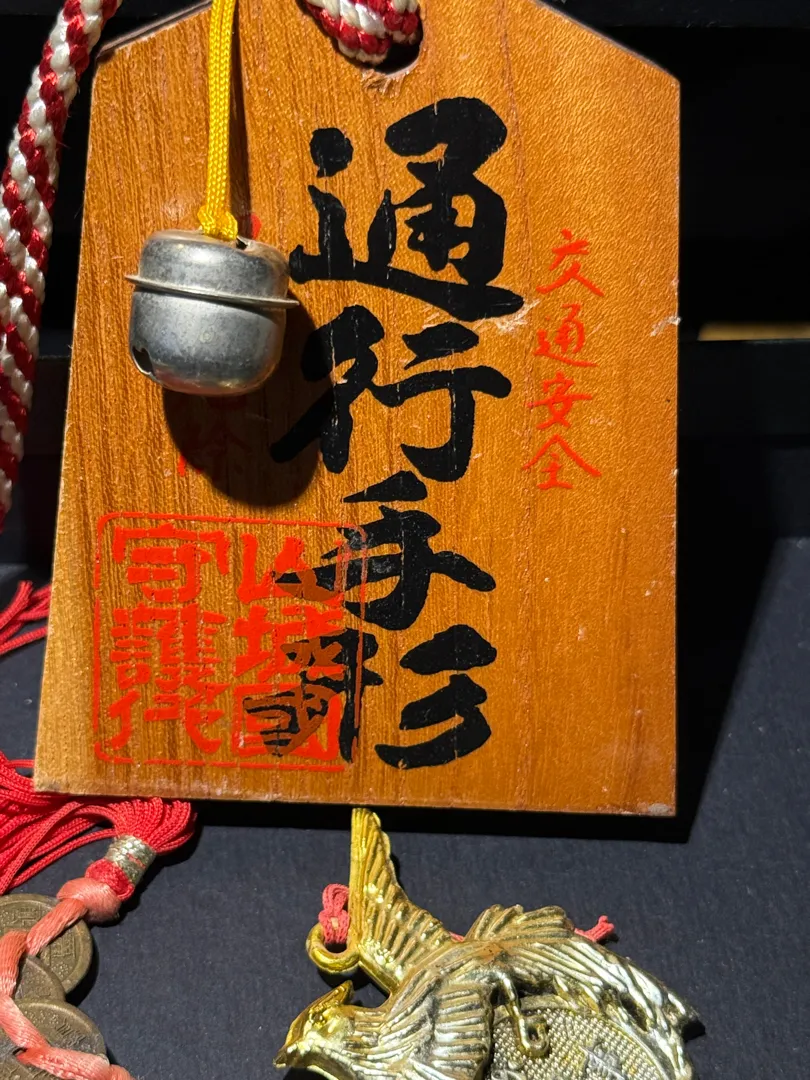 交通安全
通行手形
山城國
守護代